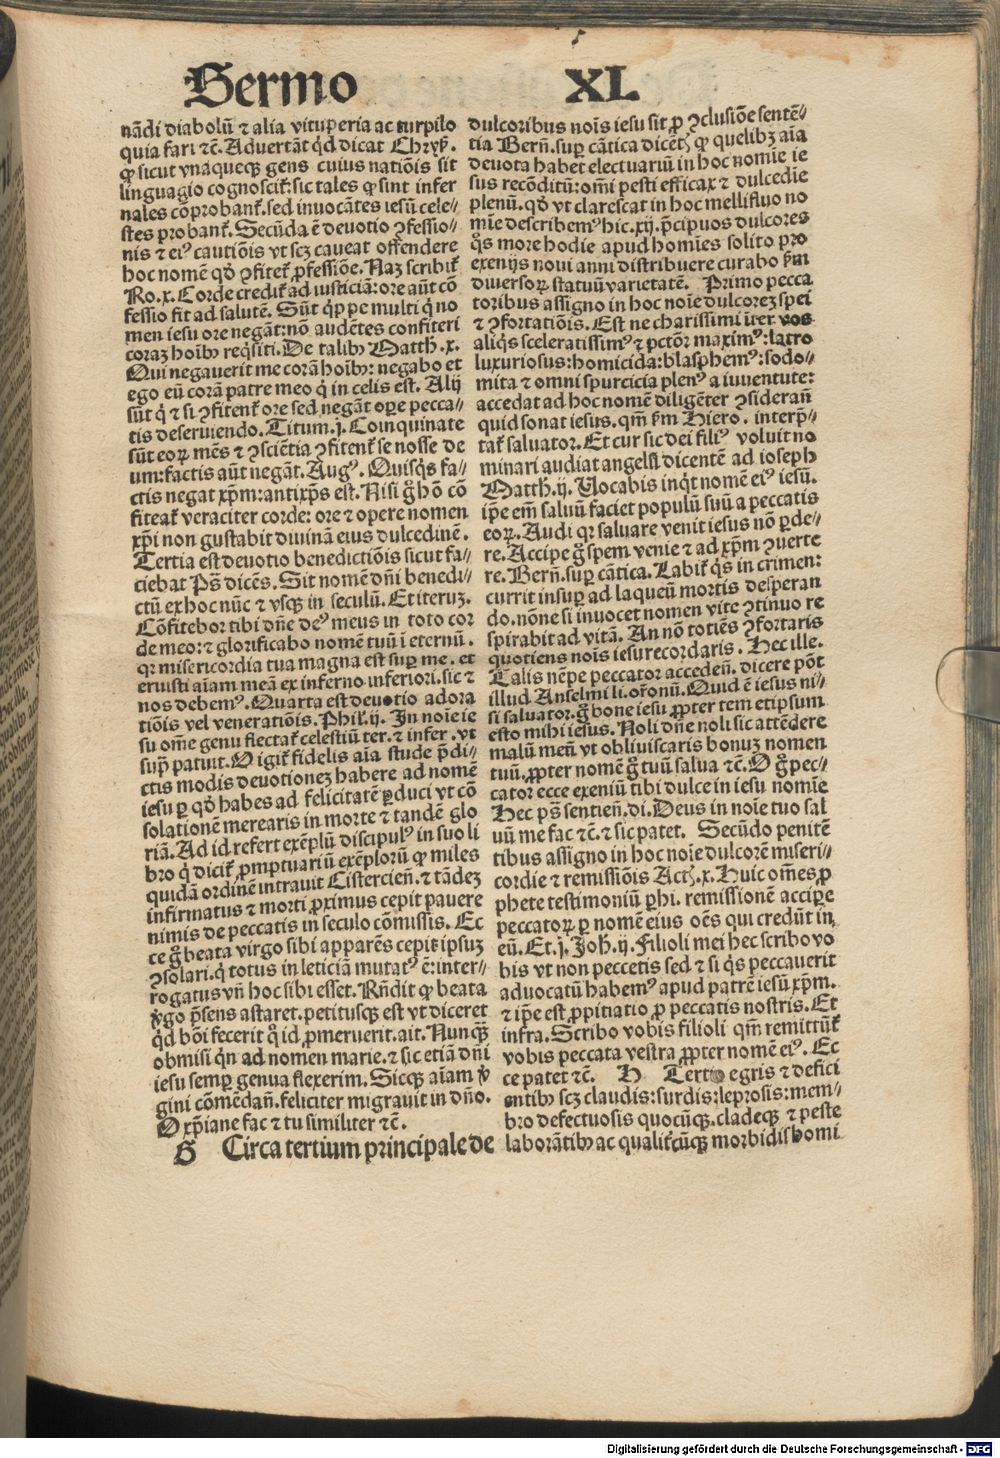 Sermo XL
nādi diabolū ⁊ alia vituperia ac turpilo
quia fari ⁊c̄. Advertāt qd̄ dicat Chryẜ.
ꝙ sicut vnaqueqꝫ gens cuius natiōis sit
linguagio cognoscit᷑: sic tales ꝙ sint infer
nales cōprobant᷑. sed invocātes iesū cele⸗
stes probant᷑. Secūda ē devotio ꝯfessio⸗
nis ⁊ eiꝰ cautiōis vt scꝫ caveat offendere
hoc nomē qd̄ ꝯfitet᷑ ꝓfessiōe. Naꝫ scribit᷑
Ro. x. Corde credit᷑ ad iusticiā: ore aūt cō
fessio fit ad salutē. Sūt qͥppe multi qͥ no
men iesu ore negāt: nō audētes confiteri
coraꝫ hoībꝰ reqͥsiti. De talibꝰ Matth. x.
Qui negaverit me corā hoībꝰ: negabo et
ego eū corā patre meo qͥ in celis est. Alij
sūt qͥ ⁊ si ꝯfitent᷑ ore sed negāt oꝑe pecca⸗
tis deserviendo. Titum. j. Coinquinate
sūt eoꝝ mēs ⁊ ꝯsciētia ꝯfitent᷑ se nosse de
um: factis aūt negāt. Augꝰ. Quisqͥs fa⸗
ctis negat xp̄m: antixp̄s est. Nisi gͦ hō cō
fiteat᷑ veraciter corde: ore ⁊ opere nomen
xp̄i non gustabit divinā eius dulcedinē.
Tertia est devotio benedictiōis sicut fa⸗
ciebat Ps̄ dicēs. Sit nomē dn̄i benedi⸗
ctū ex hoc nūc ⁊ vsqꝫ in seculū. Et iteruꝫ.
Cōfitebor tibi dn̄e deꝰ meus in toto cor
de meo: ⁊ glorificabo nomē tuū ī eternū.
qꝛ misericordia tua magna est suꝑ me. et
eruisti aīam meā ex inferno inferiori. sic ⁊
nos debemꝰ. Quarta est devotio adora
tiōis vel veneratiōis. Phil᷑. ij. In noīe ie
su om̄e genu flectat᷑ celestiū ter. ⁊ infer. vt
supͣ patuit. O igit᷑ fidelis aīa stude p̄di⸗
ctis modis devotioneꝫ habere ad nomē
iesu ꝑ qd̄ habes ad felicitatē ꝑduci vt cō
solationē merearis in morte ⁊ tandē glo
riā. Ad id refert exēplū discipulꝰ in suo li
bro qͥ dicit᷑ promptuariū exēploꝝ ꝙ miles
quidā ordinē intravit Cistercien̄. ⁊ tādeꝫ
infirmatus ⁊ morti proximus cepit pavere
nimis de peccatis in seculo cōmissis. Ec
ce gͦ beata virgo sibi apparēs cepit ipsuꝫ
ꝯsolari. qͥ totus in leticiā mutatꝰ ē: inter⸗
rogatus vn̄ hoc sibi esset. Rn̄dit ꝙ beata
ꝟgo p̄sens astaret. petitusqꝫ est vt diceret
qd̄ bōi fecerit qͦ id ꝓmeruerit. ait. Nunqꝫ
obmisi qͥn ad nomen marie. ⁊ sic etiā dn̄i
iesu semꝑ genua flexerim. Sicqꝫ aīam ꝟ
gini cōmēdan̄. feliciter migravit in dn̄o.
O xp̄iane fac ⁊ tu similiter ⁊c̄.
G Circa tertium principale de
dulcoribus noīs iesu sit ꝓ ꝯclusiōe sentē⸗
tia Bern̄. suꝑ cātica dicēt᷑ ꝙ quelibꝫ aīa
devota habet electuariū in hoc nomīe ie
sus recōditū: om̄i pesti efficax ⁊ dulcedīe
plenū. qd̄ vt clarescat in hoc mellifluo no
mīe describemꝰ hic. xij. p̄cipuos dulcores
qͦs more hodie apud homīes solito pro
exenijs novi anni distribuere curabo ẜm
diversoꝝ statuū varietatē. Primo pecca
toribus assigno in hoc noīe dulcoreꝫ spei
⁊ ꝯfortatiōis. Est ne charissimi īter vos
aliqͥs sceleratissimꝰ ⁊ pctōr maximꝰ: latro
luxuriosus: homicida: blasphemꝰ: sodo⸗
mita ⁊ omni spurcicia plenꝰ a iuventute:
accedat ad hoc nomē diligēter ꝯsideran̄
quid sonat iesus. qm̄ ẜm Hiero. interp̄⸗
tat᷑ salvator. Et cur sic dei filiꝰ voluit no
minari audiat angelū dicentē ad ioseph
Matth. ij. Vocabis inqͥt nomē eiꝰ iesū.
ip̄e em̄ salvū faciet populū suū a peccatis
eoꝝ. Audi qꝛ salvare venit iesus nō ꝑde⸗
re. Accipe gͦ spem venie ⁊ ad xp̄m ꝯverte
re. Bern̄. suꝑ cātica. Labit᷑ qͥs in crimen:
currit insuꝑ ad laqueū mortis desperan
do. nōne si invocet nomen vite ꝯtinuo re
spirabit ad vitā. An nō totiēs ꝯfortaris
quotiens noīs iesu recordaris. Hec ille.
Talis nēpe peccator acceden̄. dicere pōt
illud Anselmi li. or̄onū. Quid ē iesus ni⸗
si salvator. gͦ bone iesu ꝓpter temetipsum
esto mihi iesus. Noli dn̄e noli sic attēdere
malū meū vt obliviscaris bonuꝫ nomen
tuū. ꝓpter nomē gͦ tuū salva ⁊c̄. O gͦ pec⸗
cator ecce exeniū tibi dulce in iesu nomīe
Hec ps̄ sentien̄. di. Deus in noīe tuo sal
vū me fac ⁊c̄. ⁊ sic patet. Secūdo penitē
tibus assigno in hoc noīe dulcorē miseri⸗
cordie ⁊ remissiōis Act. x. Huic om̄es ꝓ
phete testimoniū ꝑhi. remissionē acciꝑe
peccatoꝝ ꝑ nomē eius oēs qui credūt in
eū. Et. j. Joh̄. ij. Filioli mei hec scribo vo
bis vt non peccetis sed ⁊ si qͥs peccaverit
advocatū habemꝰ apud patrē iesū xp̄m.
⁊ ip̄e est ꝓpitiatio ꝓ peccatis nostris. Et
infra. Scribo vobis filioli qm̄ remittūt᷑
vobis peccata vestra ꝓpter nomē eiꝰ. Ec
ce patet ⁊c̄. H Tertio egris ⁊ defici
entibꝰ scꝫ claudis: surdis: leprosis: mem⸗
bro defectuosis quocūqꝫ. cladeqꝫ ⁊ peste
laborātibꝰ ac qualit᷑cūqꝫ morbidis homi
Digitalisierung gefördert durch die Deutsche Forschungsgemeinschaft - DFG